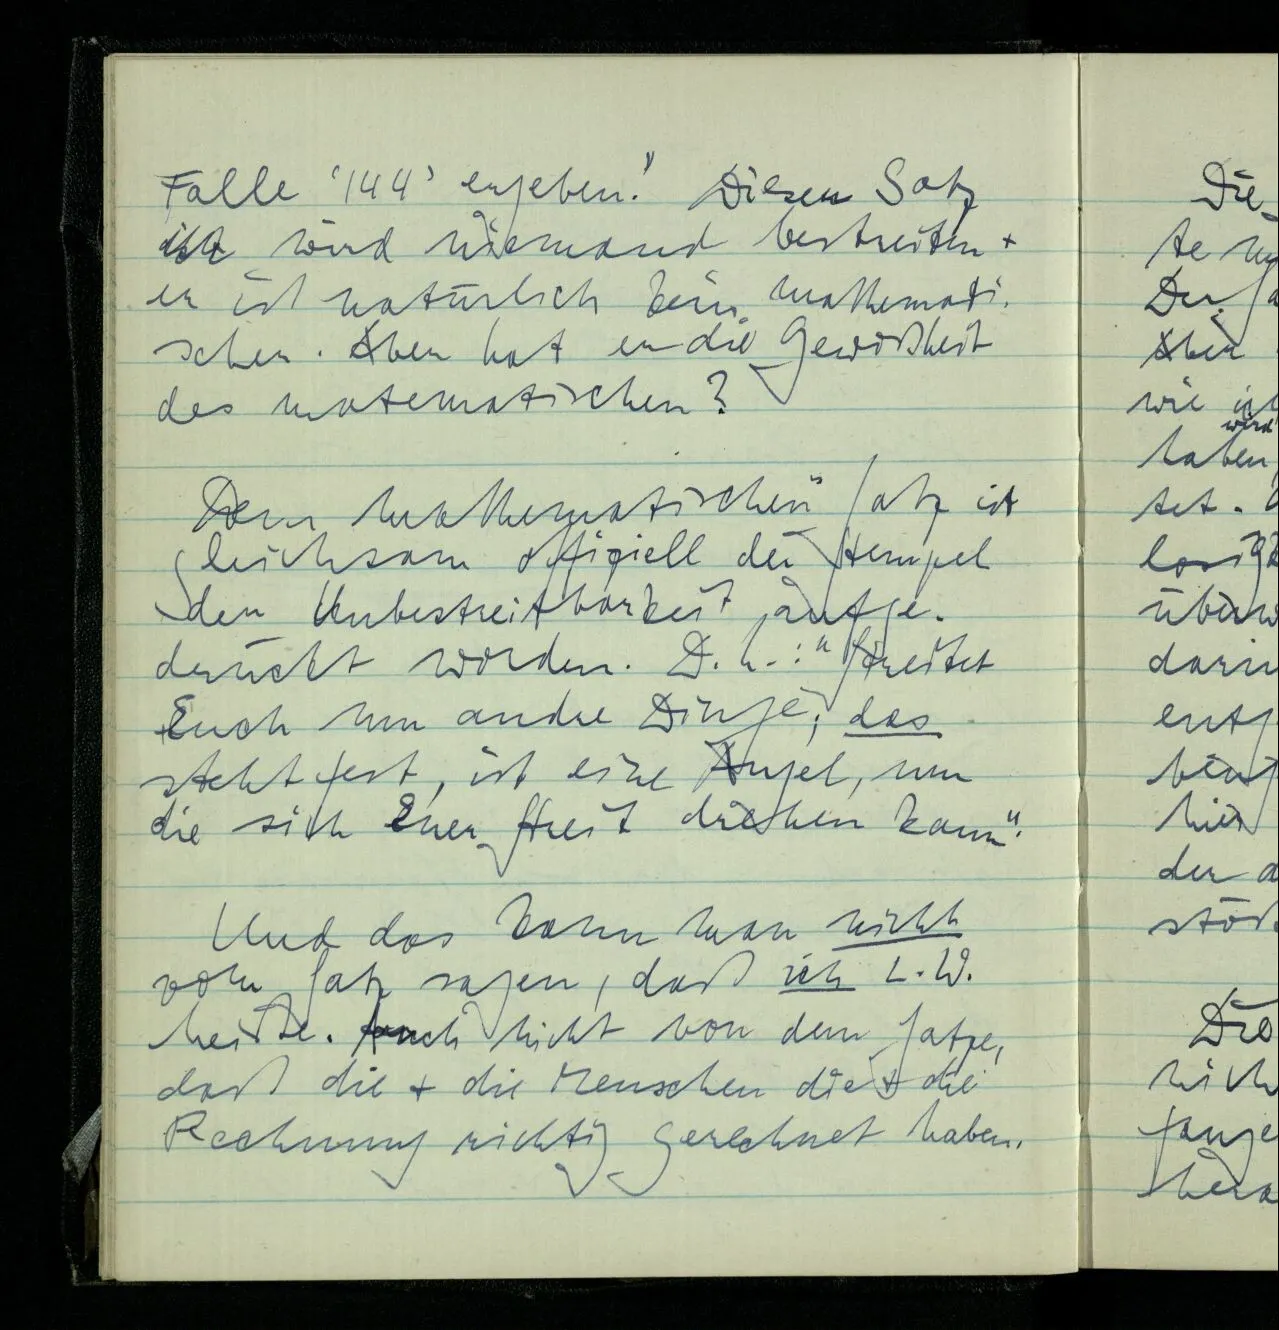 Falle '144' ergeben." Diesen Satz
wird niemand bestreiten +
er ist natürlich kein mathemati-
scher. Aber hat er die Gewißheit
des matematischen?
Dem mathematischen Satz ist
gleichsam offiziell der Stempel
der Unbestreitbarkeit aufge-
drückt worden. D.h.: "Streitet
Euch um andre Dinge; das
steht fest, ist eine Angel, um
die sich Euer Streit drehen kann".
Und das kann man nicht
vom Satz sagen, daß ich L.W.
heiße. Auch nicht von dem Satze,
daß die + die Menschen die + die
Rechnung richtig gerechnet haben.
Die
te
Der
Aber
wie
wird
haben
tet.
darin
hier
der